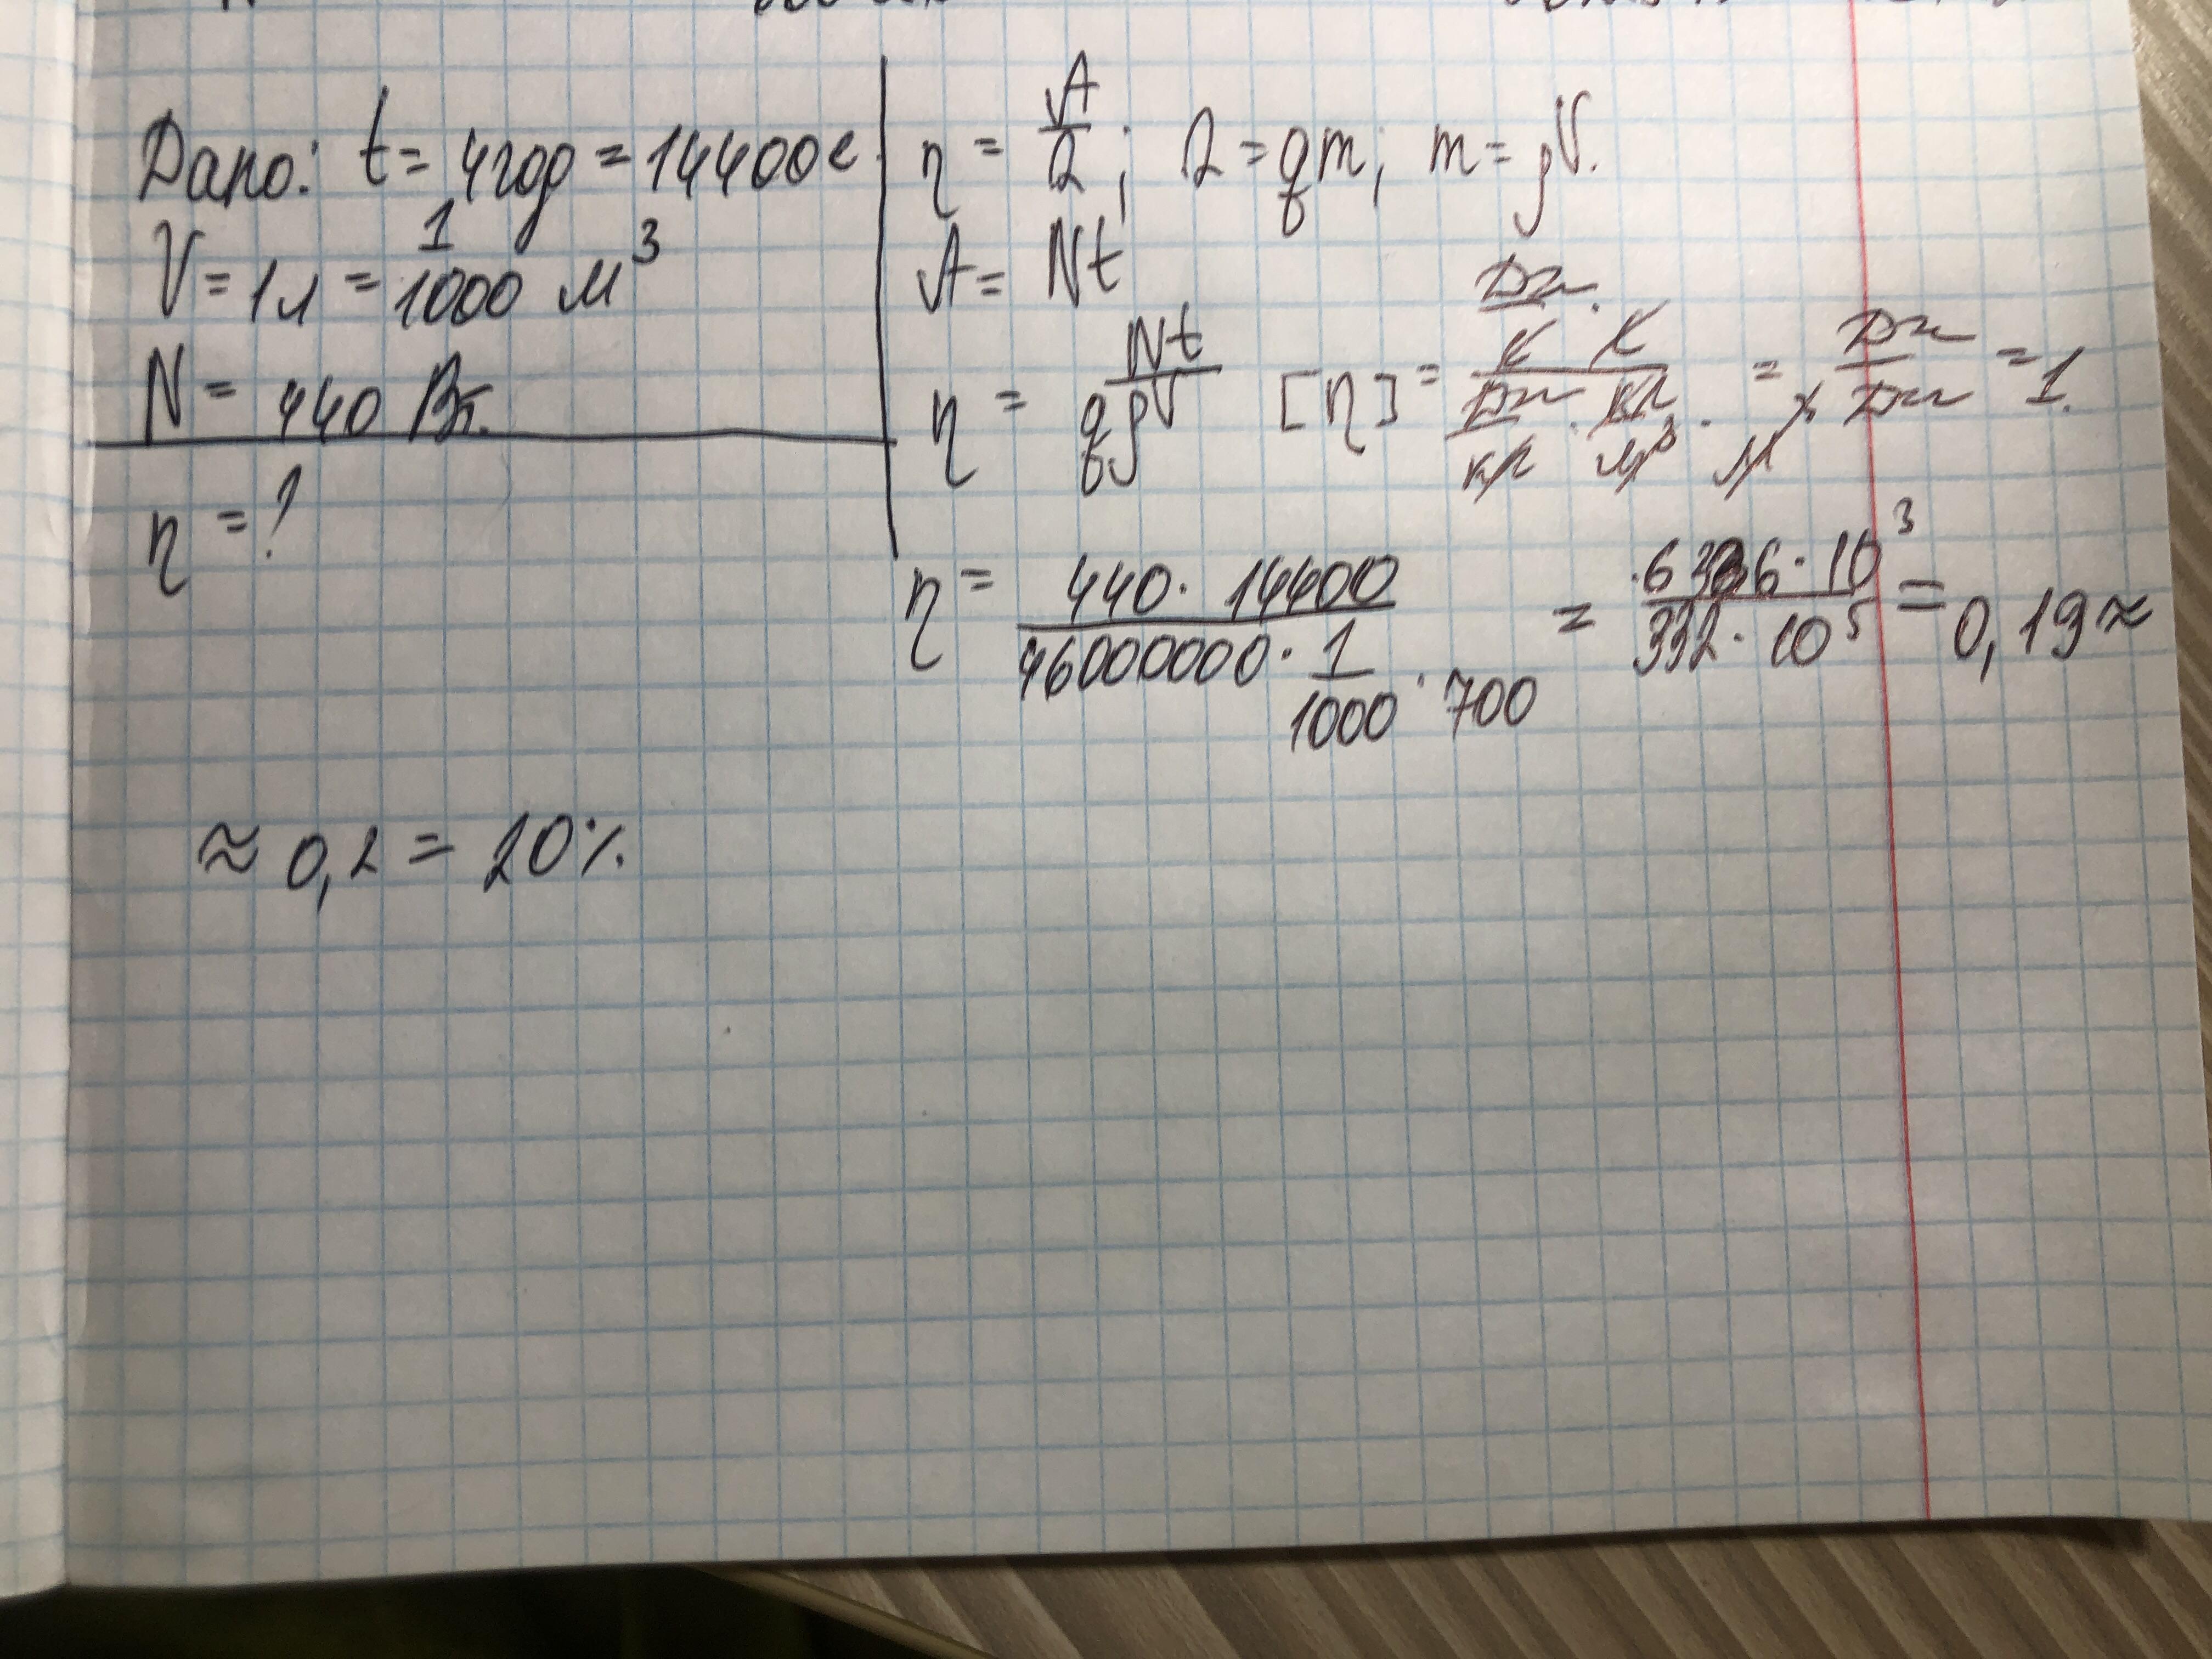 Дано: t = 4 год = 14400 с
V = 1 л = 1/1000 м³
N = 440 Вт.
η = ?
η = A/Q; Q = qm; m = ρV.
A = Nt
η = Nt/qρV [η] = (Дж/с · с)/(Дж/кг · кг/м³ · м³) = Дж/Дж = 1.
η = (440 · 14400)/(46000000 · 1/1000 · 700) = (6336 · 10³)/(332 · 10⁵) = 0,19 ≈
≈ 0,2 = 20%.